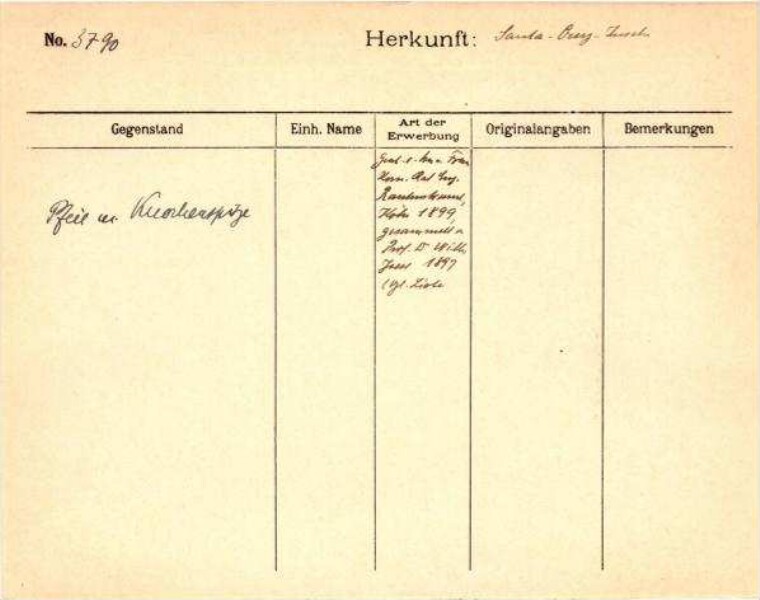 No. 3790 Herkunft: Santa-Cruz-Inseln
Gegenstand Einh. Name Art der Erwerbung Originalangaben Bemerkungen
Pfeil m. Knochenspitze
Frau
Rautenstrauch,
Köln 1899,
gesammelt v.
Prof. D. Wilh.
Joest 1897
(vgl. Liste